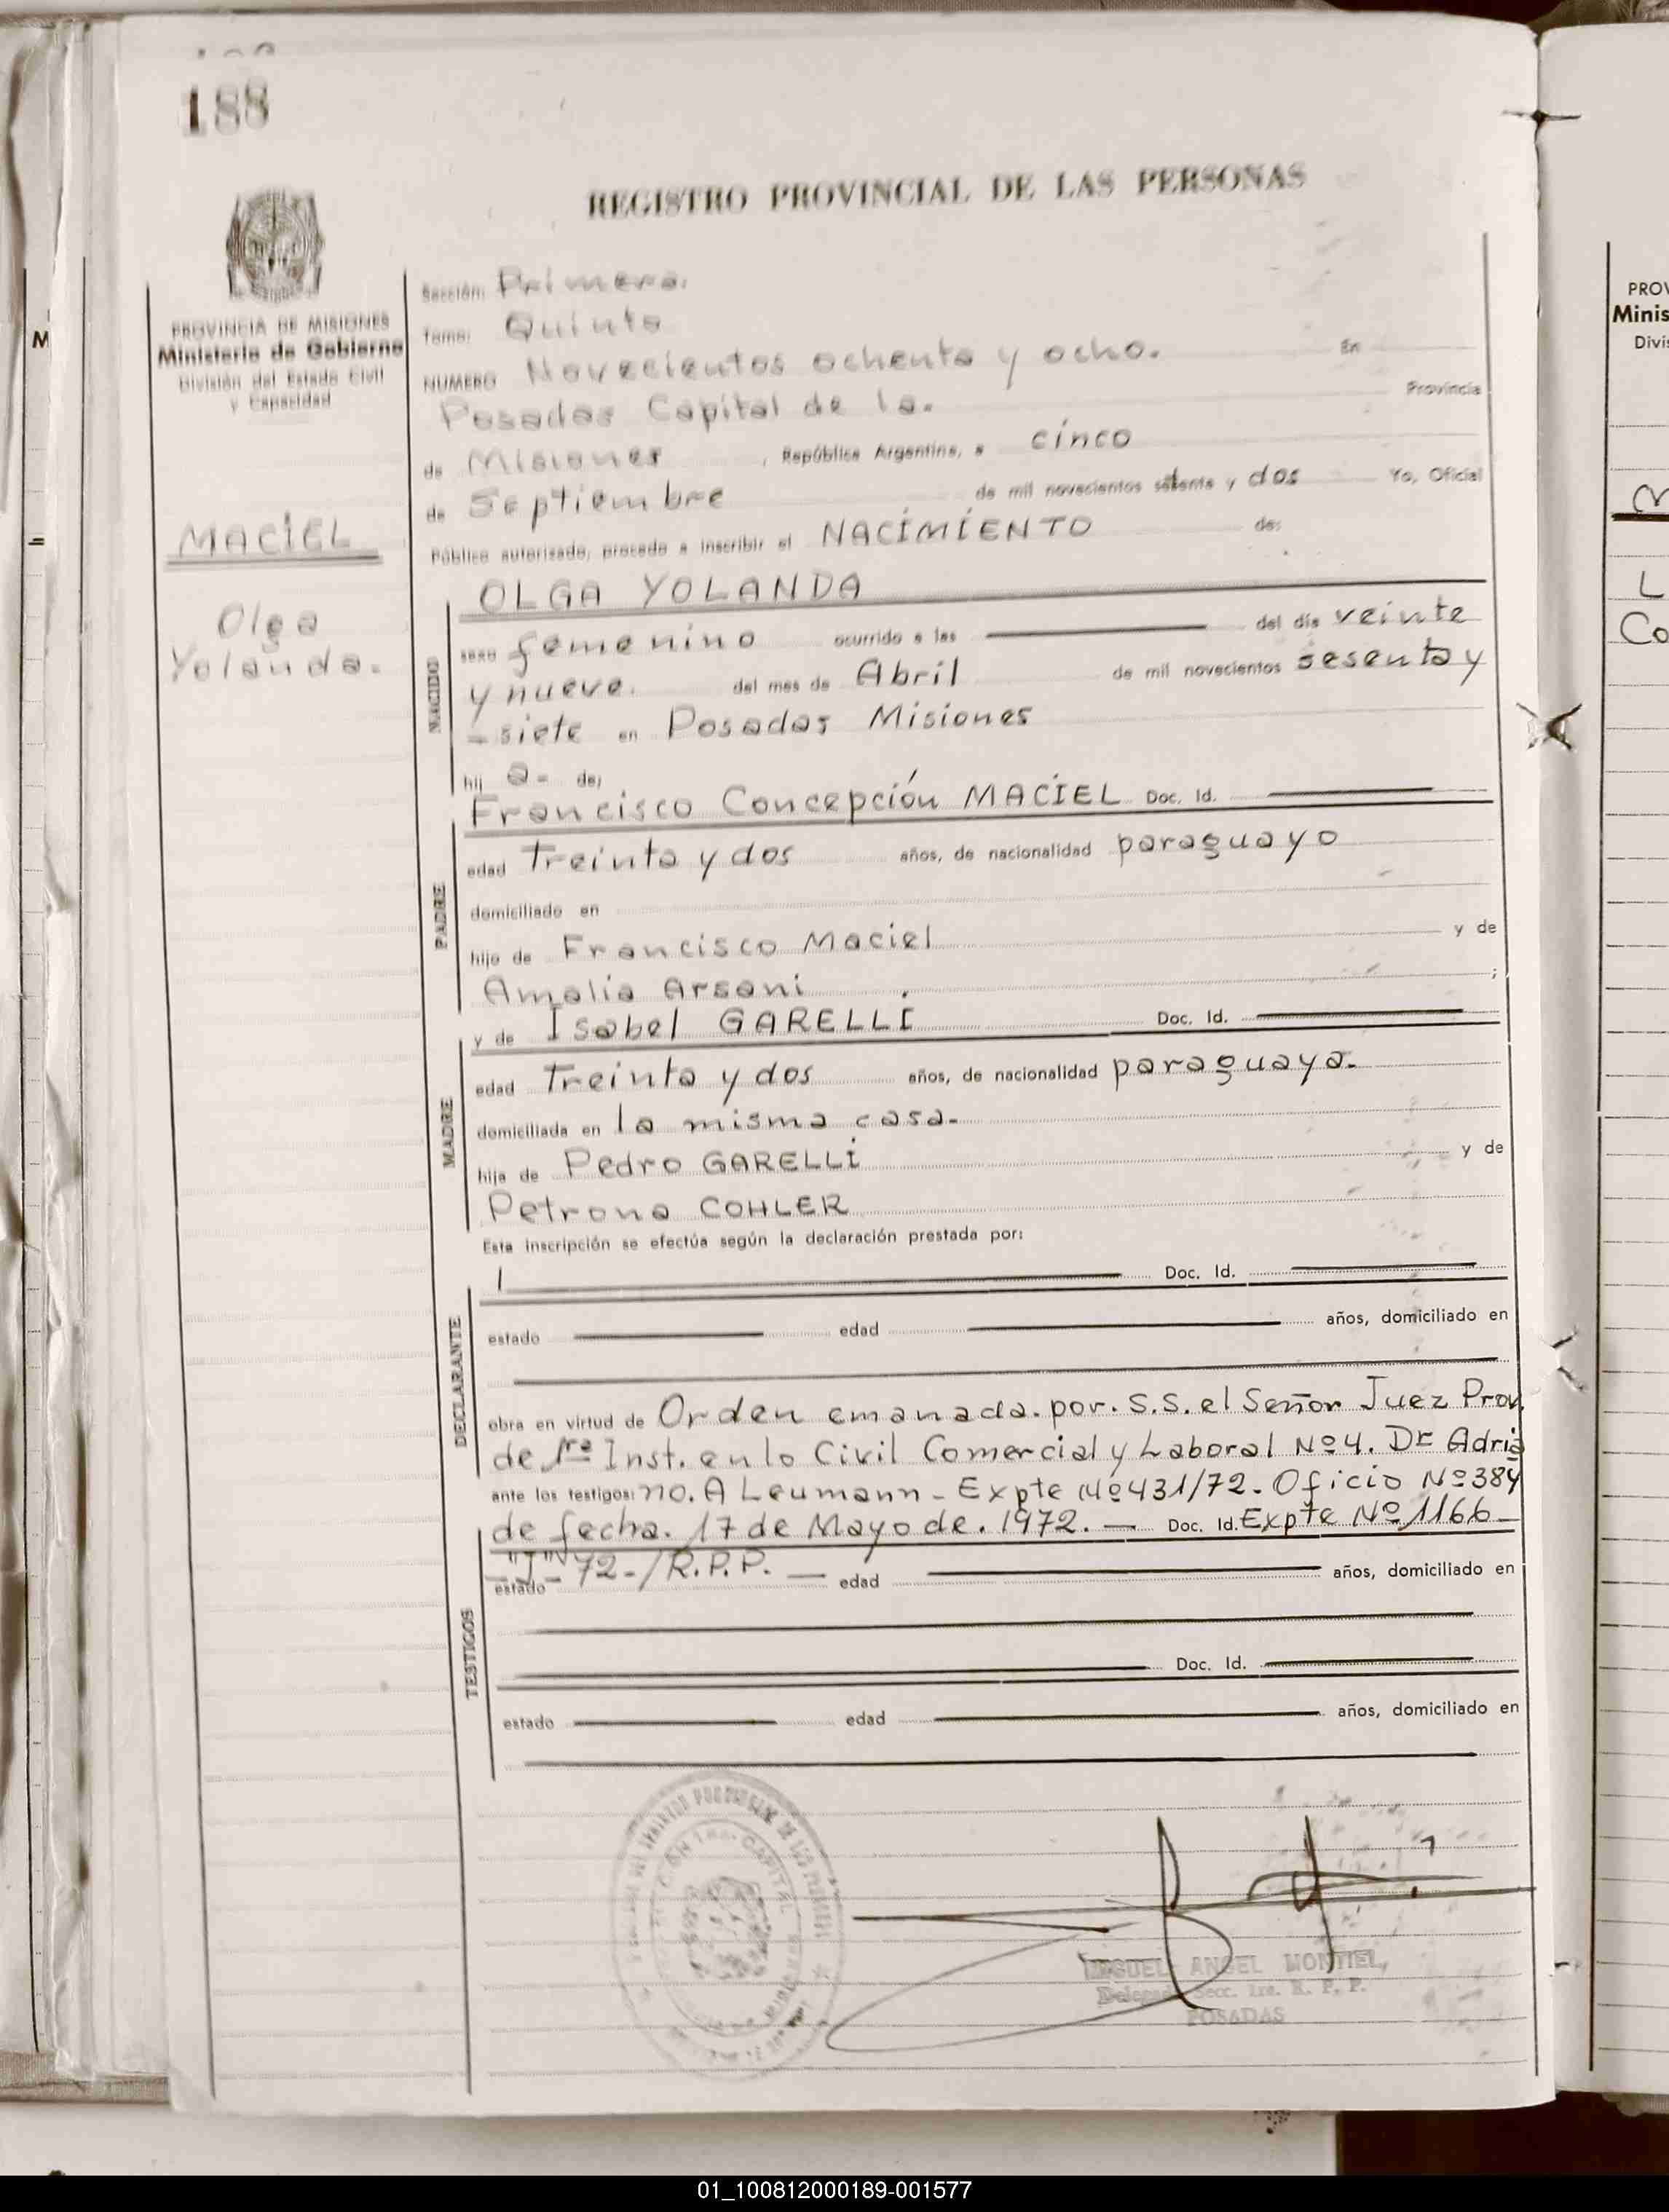 188
REGISTRO PROVINCIAL DE LAS PERSONAS
PROVINCIA DE MISIONES
Ministerio de Gobierno
División del Estado Civil
y Capacidad
MACIEL
Olga
Yolanda.
Sección: Primera.
Tomo: Quinto
NUMERO Novecientos ochenta y ocho. En
Posadas Capital de la. Provincia
de Misiones, República Argentina, a cinco
de Septiembre de mil novecientos setenta y dos Yo, Oficial
Público autorizado, procedo a inscribir el NACIMIENTO de:
OLGA YOLANDA
NACIDO
sexo femenino ocurrido a las del día veinte
y nueve. del mes de Abril de mil novecientos sesenta y
- siete en Posadas Misiones
hij a- de;
Francisco Concepción MACIEL Doc. Id.
PADRE
edad Treinta y dos años, de nacionalidad paraguayo
domiciliado en
hijo de Francisco Maciel y de
Amalia Arsani ;
y de Isabel GARELLI Doc. Id.
MADRE
edad Treinta y dos años, de nacionalidad paraguaya.-
domiciliada en la misma casa.-
hija de Pedro GARELLI y de
Petrona COHLER
Esta inscripción se efectúa según la declaración prestada por:
Doc. Id.
DECLARANTE
estado edad años, domiciliado en
obra en virtud de Orden emanada. por. S.S. el Señor Juez Prov.
de 1ra Inst. en lo Civil Comercial y Laboral Nº4. Dr Adria
ante los testigos: no. A Leumann - Expte Nº431/72. Oficio Nº384
de fecha. 17 de Mayo de. 1972. — Doc. Id. Expte Nº1166-
-"J"-72-/R.P.P. —
estado edad años, domiciliado en
TESTIGOS
Doc. Id.
estado edad años, domiciliado en
MIGUEL ANGEL MONTIEL,
Delegado Secc. 1ra. R. P. P.
POSADAS
CAPITAL
M
=
PROV
Minis
Divi
L
Co
01_100812000189-001577